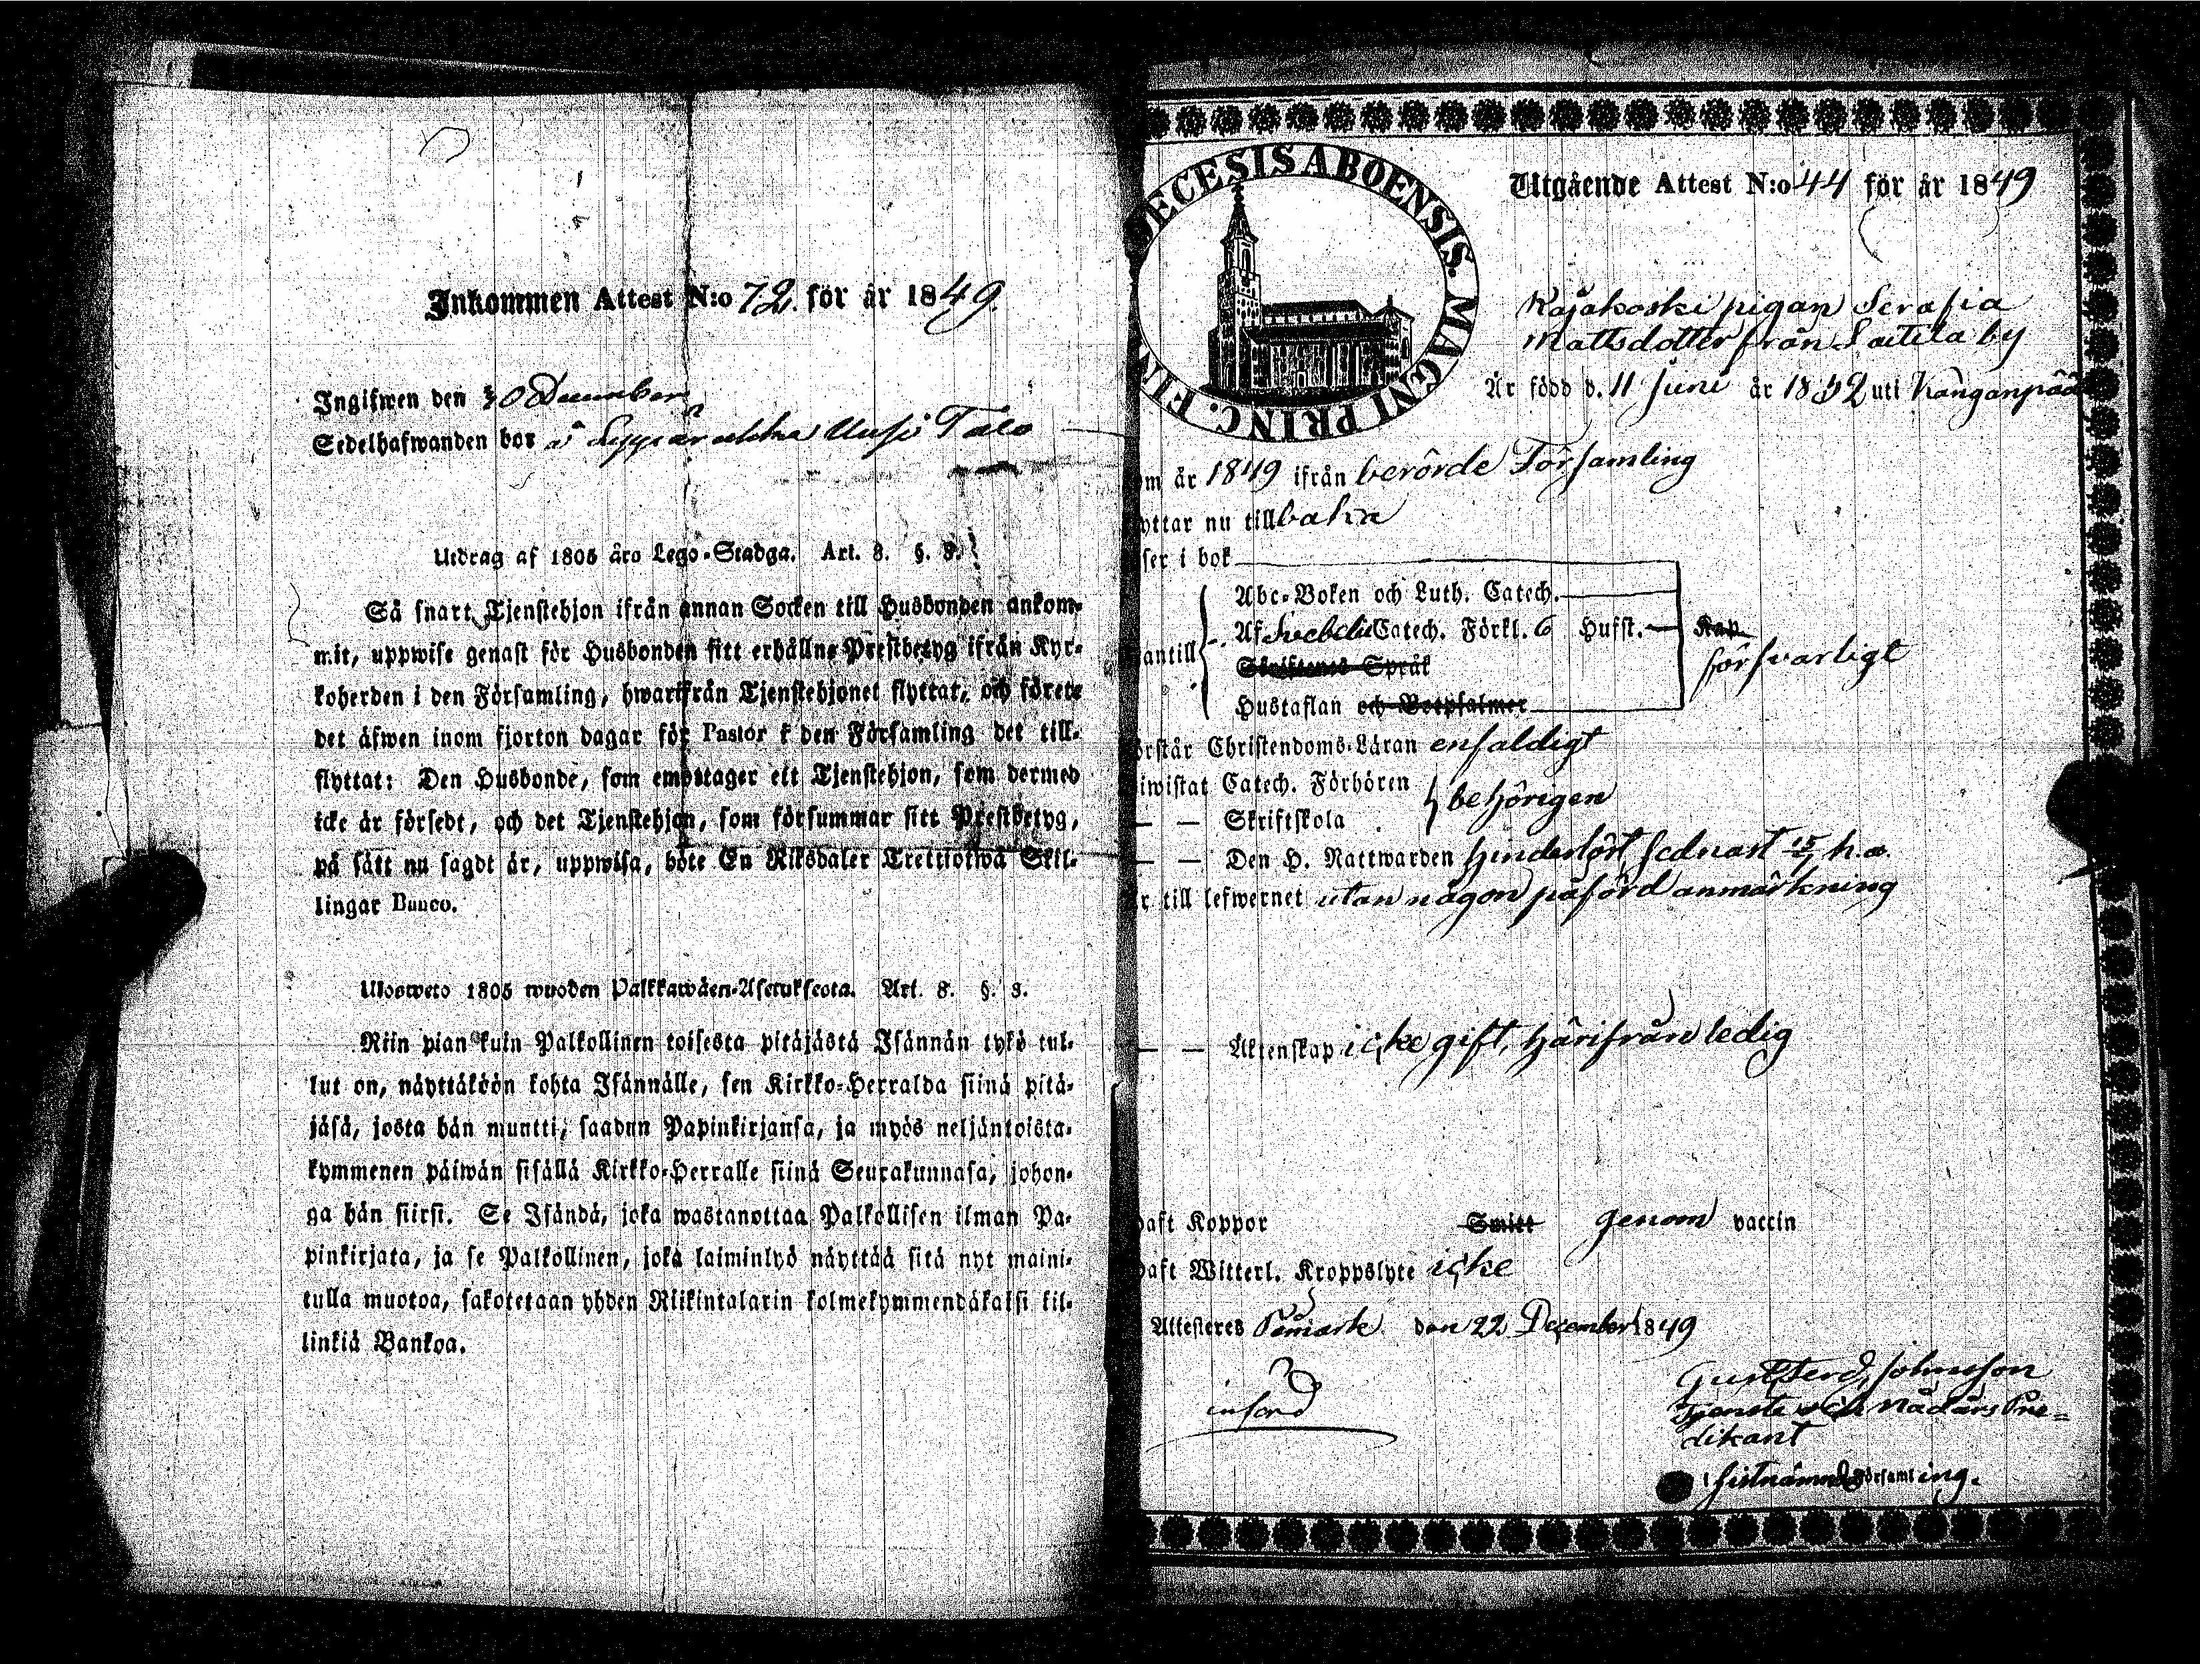 Inkommen Attest N:o 72. för år 1849.
Ingifwen den 30 December
Sedelhafwanden bor å Lypsarukka Uusi Talo
Utdrag af 1805 års Lego-Stadga. Art. 8. §. 3.
Så snart Tjenstehjon ifrån annan Socken till Husbonden ankom-
mit, uppwise genast för Husbonden sitt erhållna Prestbetyg ifrån Kyr-
koherden i den Församling, hwarifrån Tjenstehjonet flyttat, och förete
det äfwen inom fjorton dagar för Pastor i den Församling det till-
flyttat: Den Husbonde, som emottager ett Tjenstehjon, som dermed
icke är försedt, och det Tjenstehjon, som försummar sitt Prestbetyg,
på sätt nu sagdt är, uppwisa, böte En Riksdaler Trettiotwå Skil-
lingar Banco.
Ulosweto 1805 wuoden Palkkawäen-Asetuksesta. Art. 8. §. 3.
Niin pian kuin Palkollinen toisesta pitäjästä Isännän tykö tul-
lut on, näyttäköön kohta Isännälle, sen Kirkko-Herralda siinä pitä-
jäsä, josta hän muutti, saadun Papinkirjansa, ja myös neljäntoista-
kymmenen päiwän sisällä Kirkko-Herralle siinä Seurakunnasa, johon-
ga hän siirsi. Se Isändä, joka wastanottaa Palkollisen ilman Pa-
pinkirjata, ja se Palkollinen, joka laiminlyö näyttää sitä nyt maini-
tulla muotoa, sakotetaan yhden Riikintalarin kolmekymmendäkaksi kil-
linkiä Bankoa.
DECESIS ABOENSIS. MAGNI PRINC. FIN
Utgående Attest N:o 44 för år 1849
Kajakoski pigan Serafia
Mattsdotter från Laitila by
Är född d. 11 Juni år 1832 uti Kanganpää
om år 1849 ifrån berörde Församling
yttar nu tillbaka
ser i bok
Abc-Boken och Luth. Catech.
Af Svebelii Catech. Förkl. 6 Hufst. Kap.
antill Skriftenes Språk försvarligt
Hustaflan och Botpsalmer
örstår Christendoms-Läran enfaldigt
iwistat Catech. Förhören
behörigen
— — Skriftskola
— — Den H. Nattwarden hinderlöst, sednast 15/7 h.a.
r till lefwernet utan någon påförd anmärkning
— — Äktenskap icke gift, härifrån ledig
aft Koppor Smitt genom vaccin
aft Witterl. Kroppslyte icke
Attesteres Påmark den 22 December 1849
införd
Gust Ferd. Johnsson
Tjenste och Nådårs Pre-
dikant
i sistnämnd Församling.